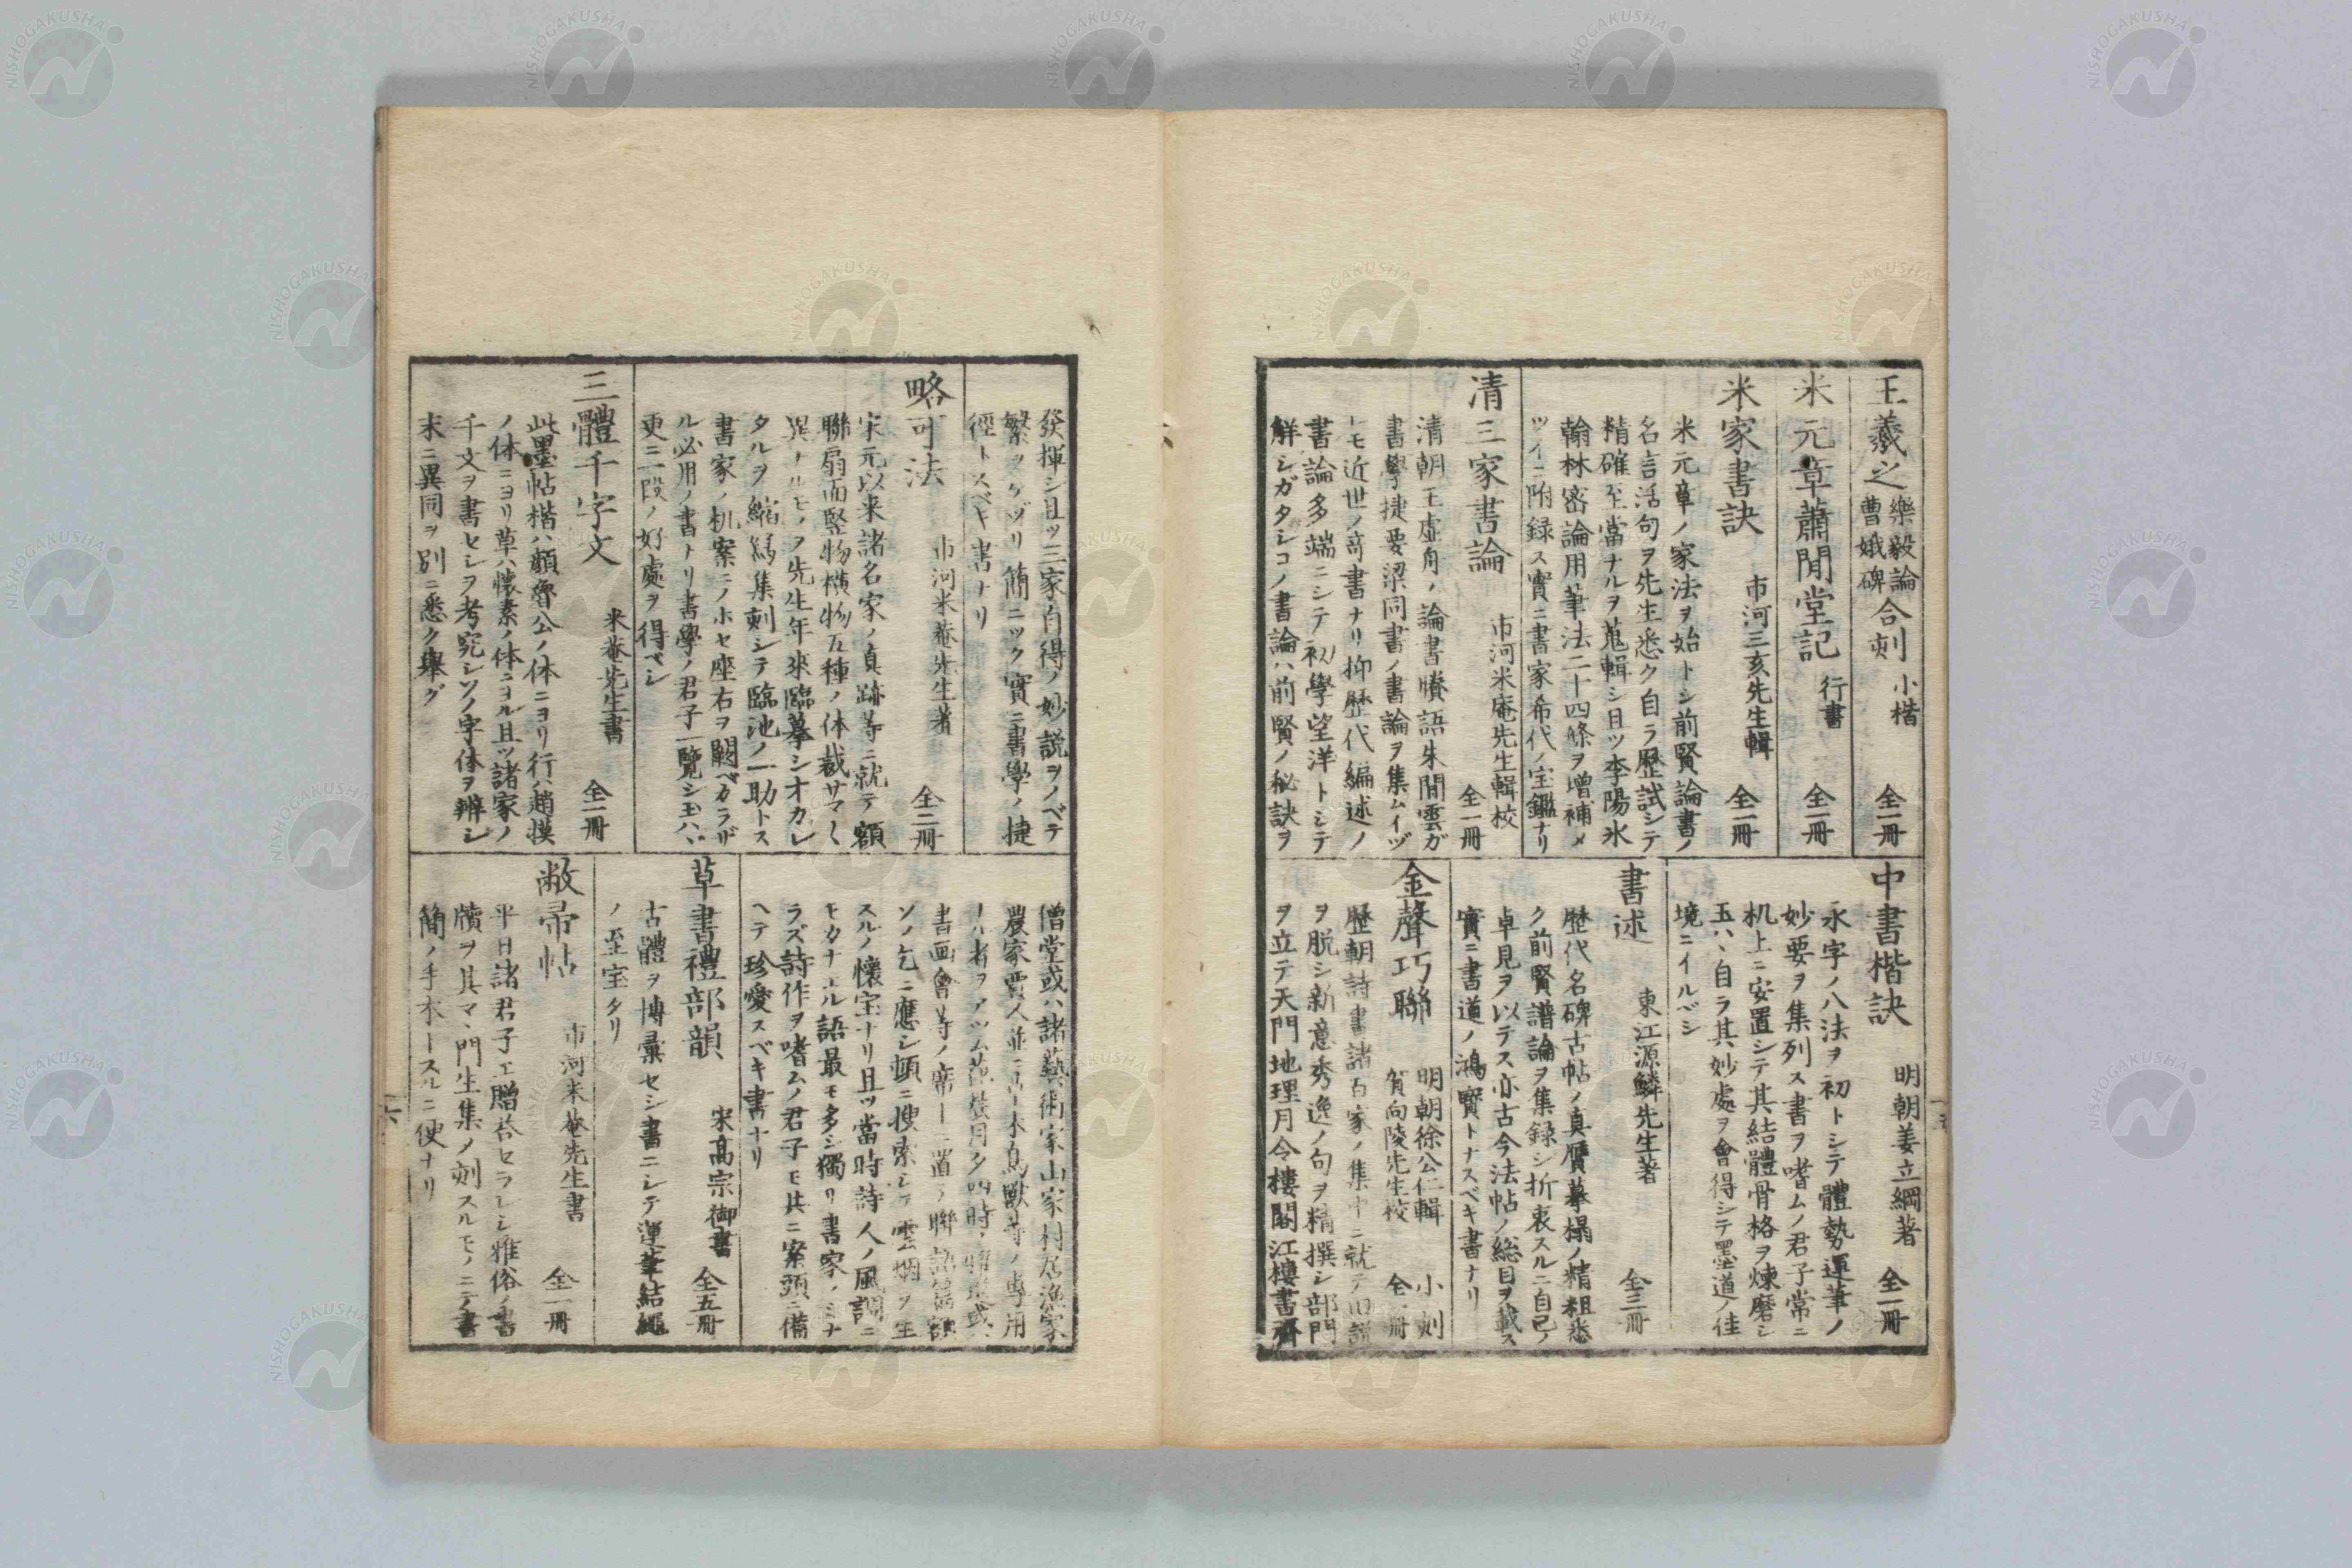 王羲之 樂毅論 曹娥碑 合刻 小楷 全一冊
米元章蕭閒堂記 行書 全一冊
米家書訣 市河三亥先生輯 全一冊
米元章ノ家法ヲ始トシ前賢論書ノ
名言活句ヲ先生悉ク自ラ歴試シテ
精確至當ナルヲ蒐輯シ且ツ李陽氷
翰林密論用筆法二十四條ヲ增補メ
ツイニ附録ス實ニ書家希代ノ宝鑑ナリ
清三家書論 市河米庵先生輯校 全一冊
清朝王虚舟ノ論書賸語朱閒雲ガ
書學捷要梁同書ノ書論ヲ集ムイヅ
レモ近世ノ奇書ナリ抑歴代編述ノ
書論多端ニシテ初學望洋トシテ
解シガタシコノ書論ハ前賢ノ秘訣ヲ
中書楷訣 明朝姜立綱著 全一冊
永字ノ八法ヲ初トシテ體勢運筆ノ
妙要ヲ集列ス書ヲ嗜ムノ君子常ニ
机上ニ安置シテ其結體骨格ヲ煉磨シ
玉ハヽ自ラ其妙處ヲ會得シテ墨道ノ佳
境ニイルベシ
書述 東江源鱗先生著 全三冊
歴代名碑古帖ノ真贋摹搨ノ精粗悉
ク前賢譜論ヲ集録シ折衷スルニ自己ノ
卓見ヲ以テス亦古今法帖ノ総目ヲ載ス
實ニ書道ノ鴻寳トナスベキ書ナリ
金聲巧聯 明朝徐公仁輯 賀向陵先生校 小刻 全一冊
歴朝詩書諸百家ノ集中ニ就テ旧説
ヲ脱シ新意秀逸ノ句ヲ精撰シ部門
ヲ立テ天門地理月令樓閣江樓書齋
發揮シ且ツ三家自得ノ妙説ヲノベテ
繁ヲケヅリ簡ニツク實ニ書學ノ捷
徑トスベキ書ナリ
略可法 市河米菴先生著 全二冊
宋元以来諸名家ノ真跡等ニ就テ額
聯扇面竪物横物五種ノ体裁サマ〱
異ナルモノヲ先生年來臨摹シオカレ
タルヲ縮寫集刻シテ臨池ノ一助トス
書家ノ机案ニノホセ座右ヲ闕ベカラザ
ル必用ノ書トリ書學ノ君子一覽シ玉ハヽ
更ニ一段ノ好處ヲ得ベシ
三體千字文 米菴先生書 全一冊
此墨帖楷ハ顏魯公ノ体ニヨリ行ハ趙模
ノ体ニヨリ草ハ懐素ノ体ニヨル且ツ諸家ノ
千文ヲ書セシヲ考究シソノ字体ヲ辨シ
末ニ異同ヲ別ニ悉ク舉グ
僧堂或ハ諸藝術家山家村居漁家
農家賈人並ニ草木鳥獸等ノ専用
書画會等ノ席上ニ置テ聯語扁額
ソノ乞ニ應シ頓ニ搜索シテ雲烟ヲ生
スルノ懐宝ナリ且ツ當時詩人ノ風調ニ
モカナエル語最モ多シ獨リ書家ノミナ
ラズ詩作ヲ嗜ムノ君子モ共ニ案頭ニ備
ヘテ珍愛スベキ書ナリ
草書禮部韻 宋高宗御書 全五冊
古體ヲ博彙セシ書ニシテ運筆結繩
ノ至宝タリ
敝帚帖 市河米菴先生書 全一冊
平日諸君子エ贈答セラレシ雅俗ノ書
牘ヲ其マヽ門生集メ刻スルモノニテ書
簡ノ手本トスルニ便ナリ
六
NISHOGAKUSHA